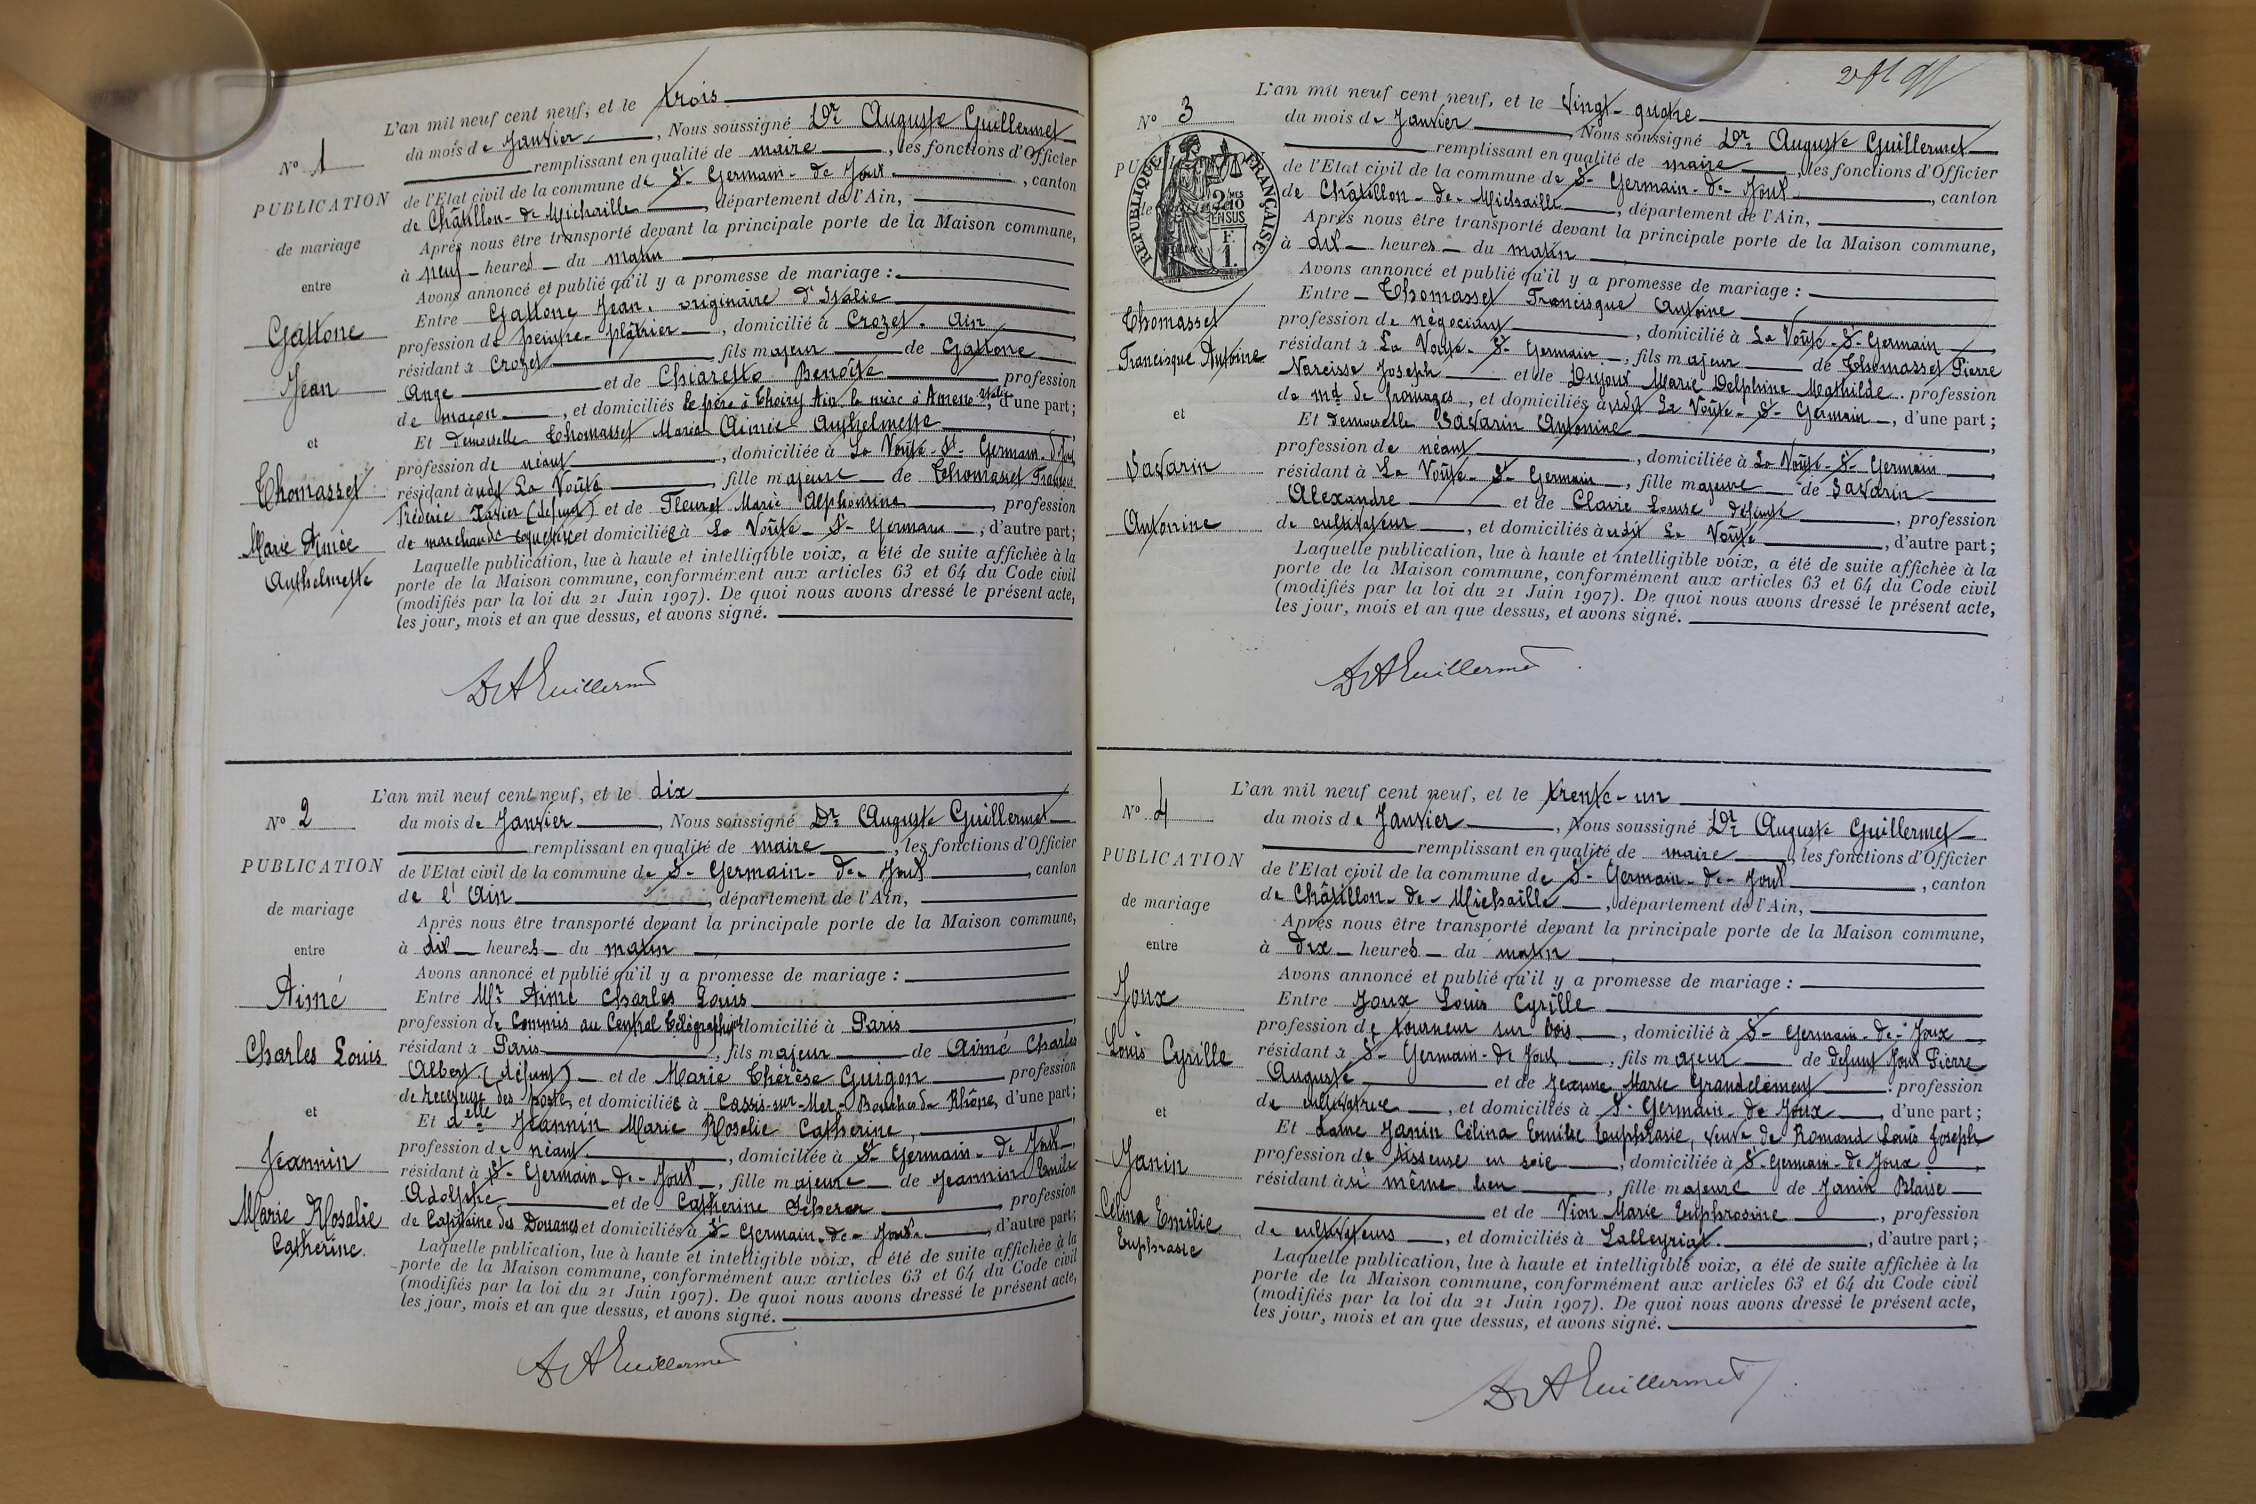 L'an mil neuf cent neuf, et le trois
du mois de Janvier, Nous soussigné Dr Auguste Guillermet
remplissant en qualité de maire, les fonctions d'Officier
de l'Etat civil de la commune de St-Germain-de Joux, canton
de Châtillon-de Michaille, département de l'Ain,
Après nous être transporté devant la principale porte de la Maison commune,
à neuf heures du matin
Avons annoncé et publié qu'il y a promesse de mariage :
Entre Gattone Jean, originaire d'Italie
profession de peintre-plâtrier, domicilié à Crozet. Ain
résidant à Crozet, fils majeur de Gattone
Ange et de Chiaretto Benoite profession
de maçon, et domiciliés le père à Thoiry Ain la mère à Ameno Italie, d'une part;
Et demoiselle Thomasset Maria Aimée Anthelmette
profession de néant, domiciliée à La Voûte-St-Germain-d-Joux
résidant à udit La Voûte, fille majeure de Thomasset François
Frédéric Xavier (défunt) et de Fleuret Marie Alphonsine, profession
de marchande coquetière et domiciliée à La Voûte-St-Germain, d'autre part;
Laquelle publication, lue à haute et intelligible voix, a été de suite affichée à la
porte de la Maison commune, conformément aux articles 63 et 64 du Code civil
(modifiés par la loi du 21 Juin 1907). De quoi nous avons dressé le présent acte,
les jour, mois et an que dessus, et avons signé.
N° 1
PUBLICATION
de mariage
entre
Gattone
Jean
et
Thomasset
Marie Aimée
Anthelmette
Dr A Guillermet
L'an mil neuf cent neuf, et le dix
du mois de Janvier, Nous soussigné Dr Auguste Guillermet
remplissant en qualité de maire, les fonctions d'Officier
de l'Etat civil de la commune de St-Germain-de-Joux, canton
de l'Ain, département de l'Ain,
Après nous être transporté devant la principale porte de la Maison commune,
à dix heures du matin
Avons annoncé et publié qu'il y a promesse de mariage :
Entre Mr Aimé Charles Louis
profession de Commis au Central Télégraphique domicilié à Paris
résidant à Paris, fils majeur de Aimé Charles
Albert (défunt) et de Marie Thérèse Guigon profession
de receveuse des postes, et domiciliée à Cassis-sur-Mer-Bouches du Rhône, d'une part;
Et delle Jeannin Marie Rosalie Catherine,
profession de néant, domiciliée à St-Germain-de Joux,
résidant à St-Germain-de-Joux, fille majeure de Jeannin Emile
Adolphe et de Catherine Scherer, profession
de Capitaine des Douanes et domiciliés à St-Germain-de-Joux, d'autre part;
Laquelle publication, lue à haute et intelligible voix, a été de suite affichée à la
porte de la Maison commune, conformément aux articles 63 et 64 du Code civil
(modifiés par la loi du 21 Juin 1907). De quoi nous avons dressé le présent acte,
les jour, mois et an que dessus, et avons signé.
N° 2
PUBLICATION
de mariage
entre
Aimé
Charles Louis
et
Jeannin
Marie Rosalie
Catherine.
Dr A Guillermet
L'an mil neuf cent neuf, et le vingt-quatre
du mois de Janvier Nous soussigné Dr Auguste Guillermet
remplissant en qualité de maire, les fonctions d'Officier
de l'Etat civil de la commune de St-Germain-de-Joux, canton
de Châtillon-de-Michaille, département de l'Ain,
Après nous être transporté devant la principale porte de la Maison commune,
à dix heures du matin
Avons annoncé et publié qu'il y a promesse de mariage :
Entre Thomasset Francisque Antoine
profession de négociant, domicilié à La Voûte-St-Germain
résidant à La Voûte-St-Germain, fils majeur de Thomasset Pierre
Narcisse Joseph et de Dujoux Marie Delphine Mathilde. profession
de md de fromages, et domiciliés à udit La Voûte-St-Germain, d'une part;
Et demoiselle Savarin Antonine
profession de néant, domiciliée à La Voûte-St-Germain
résidant à La Voûte-St-Germain, fille majeure de Savarin
Alexandre et de Clavie Louise défunte, profession
de cultivateur, et domiciliés à udit La Voûte, d'autre part;
Laquelle publication, lue à haute et intelligible voix, a été de suite affichée à la
porte de la Maison commune, conformément aux articles 63 et 64 du Code civil
(modifiés par la loi du 21 Juin 1907). De quoi nous avons dressé le présent acte,
les jour, mois et an que dessus, et avons signé.
N° 3
RÉPUBLIQUE FRANÇAISE
2/10
EN SUS
F.
1.
Thomasset
Francisque Antoine
et
Savarin
Antonine
Dr A Guillermet
L'an mil neuf cent neuf, et le trente-un
du mois de Janvier, Nous soussigné Dr Auguste Guillermet
remplissant en qualité de maire, les fonctions d'Officier
de l'Etat civil de la commune de St-Germain-de-Joux, canton
de Châtillon-de-Michaille, département de l'Ain,
Après nous être transporté devant la principale porte de la Maison commune,
à dix heures du matin
Avons annoncé et publié qu'il y a promesse de mariage :
Entre Joux Louis Cyrille
profession de tourneur sur bois, domicilié à St-Germain-de-Joux
résidant à St-Germain-de Joux, fils majeur de défunt Joux Pierre
Auguste et de Jeanne Marie Grandclément. profession
de cultivatrice, et domiciliés à St-Germain-de Joux, d'une part;
Et dame Janin Célina Emilie Euphrasie, veuve de Romand Louis Joseph
profession de tisseuse en soie, domiciliée à St-Germain-de Joux
résidant à si même lieu, fille majeure de Janin Blaise
et de Vion Marie Euphrosine, profession
de cultivateurs, et domiciliés à Lalleyriat., d'autre part;
Laquelle publication, lue à haute et intelligible voix, a été de suite affichée à la
porte de la Maison commune, conformément aux articles 63 et 64 du Code civil
(modifiés par la loi du 21 Juin 1907). De quoi nous avons dressé le présent acte,
les jour, mois et an que dessus, et avons signé.
N° 4
PUBLICATION
de mariage
entre
Joux
Louis Cyrille
et
Janin
Célina Emilie
Euphrasie
Dr A Guillermet